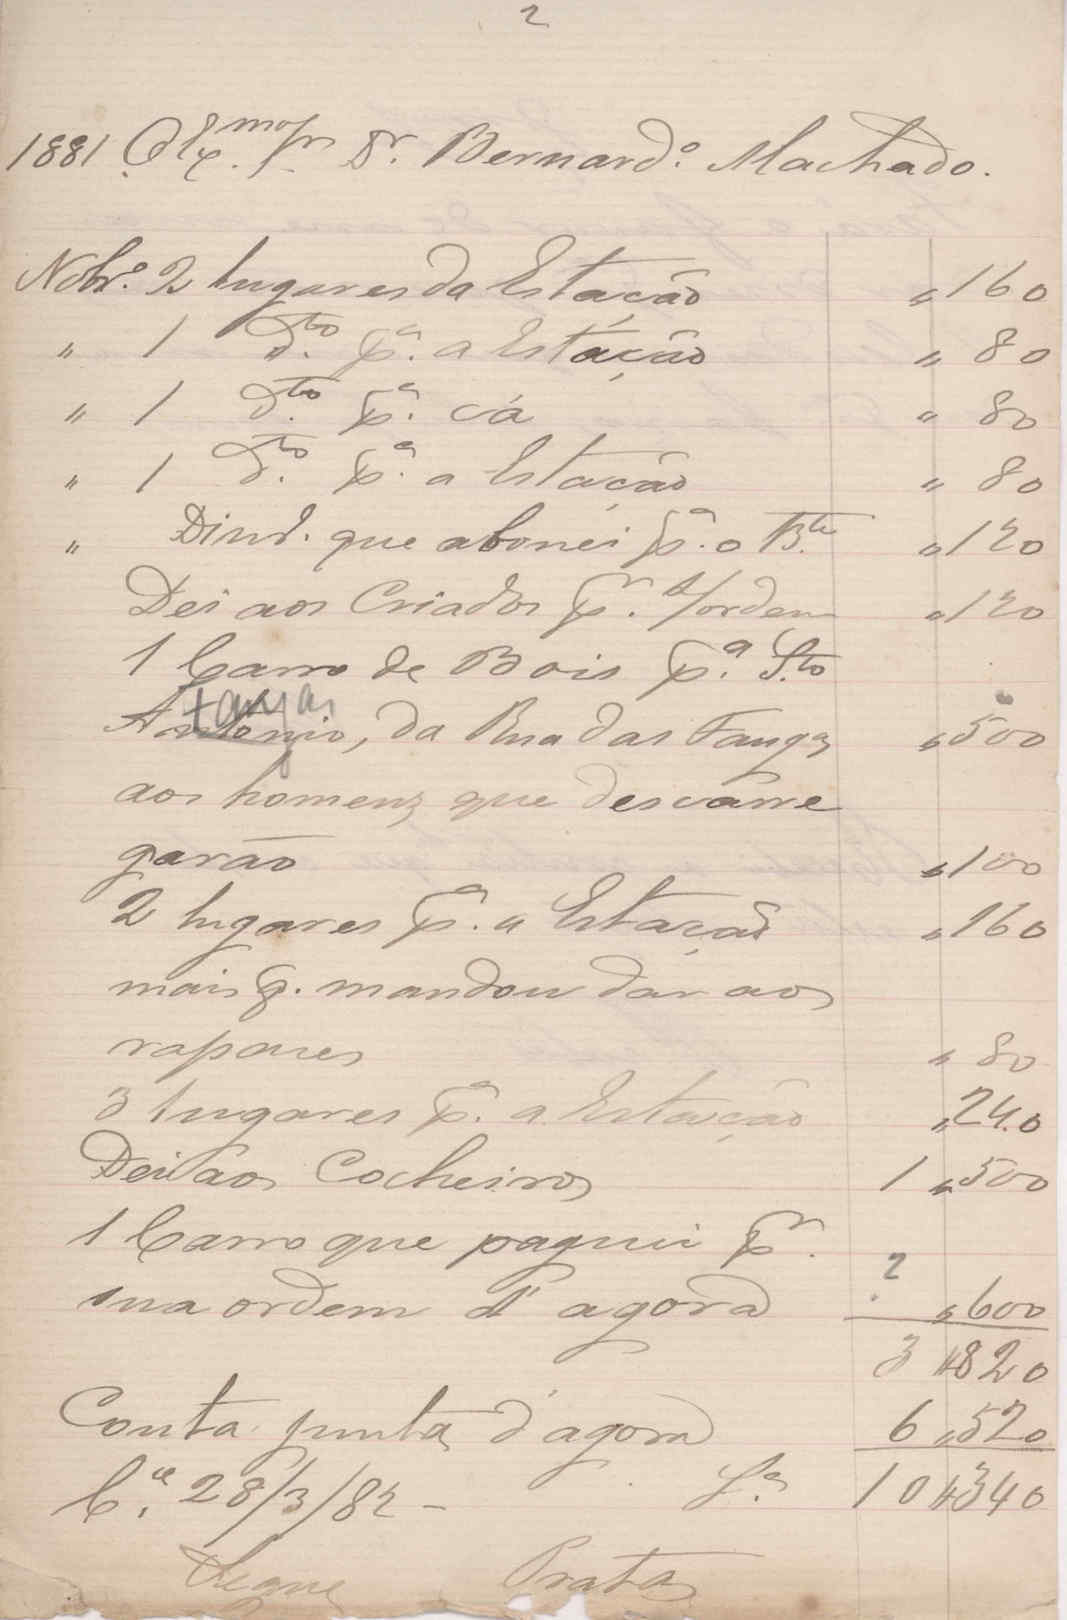 2
1881 Ill.mo Ex.mo Sr. Dr. Bernard.º Machado.
Nobr.º 2 lugares da Estação " 160
" 1 d.to p.ª a Estação " 80
" 1 d.to p.ª cá " 80
" 1 d.to p.ª a Estação " 80
" Dinhr. que abonei p.ª o B.te " 120
Dei aos Criados p.r s/ordem " 120
1 Carro de Bois p.ª S.to
Fangas
António, da Rua das Fangas " 500
aos homens que descarre
garão " 100
2 lugares p.ª a Estação " 160
mais q. mandou dar aos
rapazes " 80
3 lugares p.ª a Estação " 240
Dei aos Cocheiros 1 " 500
1 Carro que paguei p.r
sua ordem d'agora " 600
2
3 " 820
Conta junta, d'agora 6 " 520
C.ª 28/3/82 - S.ª 10 " 340
Segue Prata